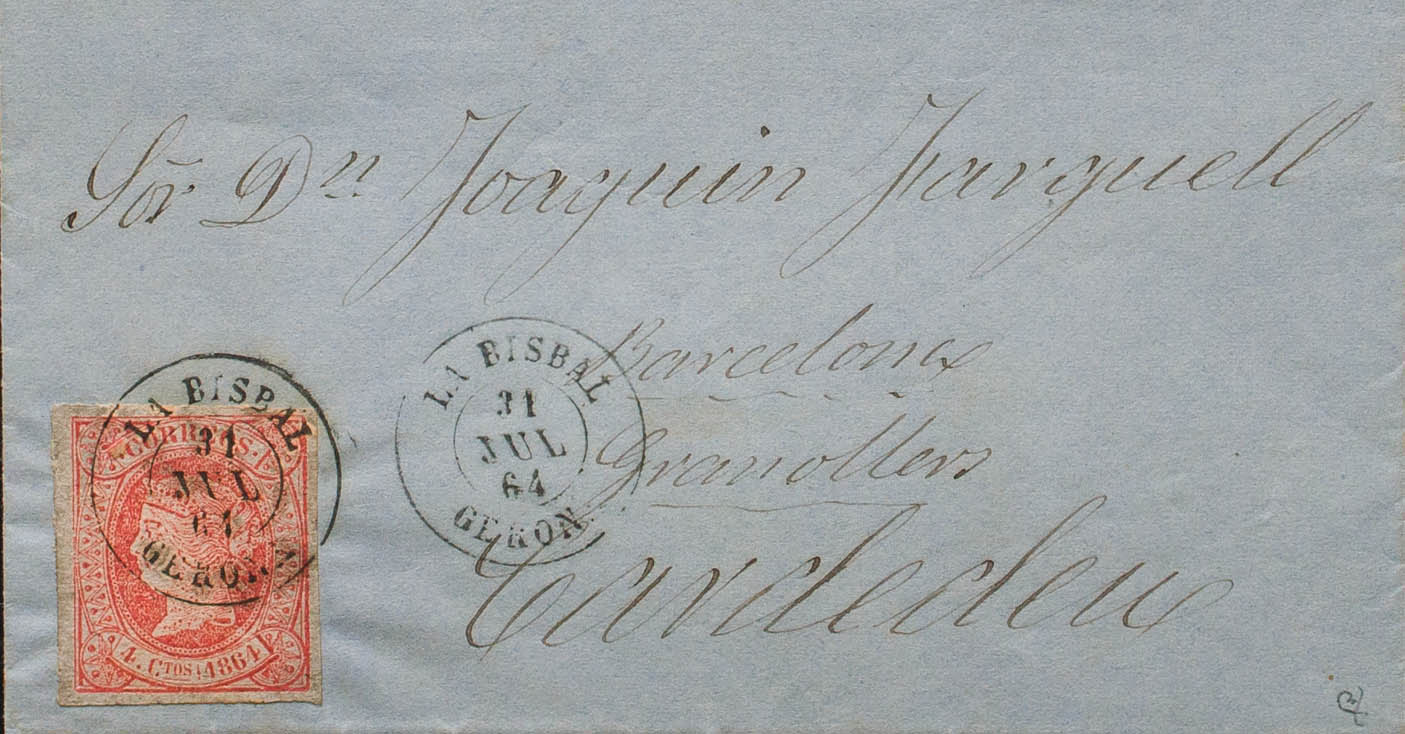 Sor Dn Joaquin Farguell
Barcelona
Granollers
Cardedeu
LA BISBAL
31
JUL
64
GERON
LA BISBAL
31
JUL
64
GERON
CORREOS.
4. CTOS 1864